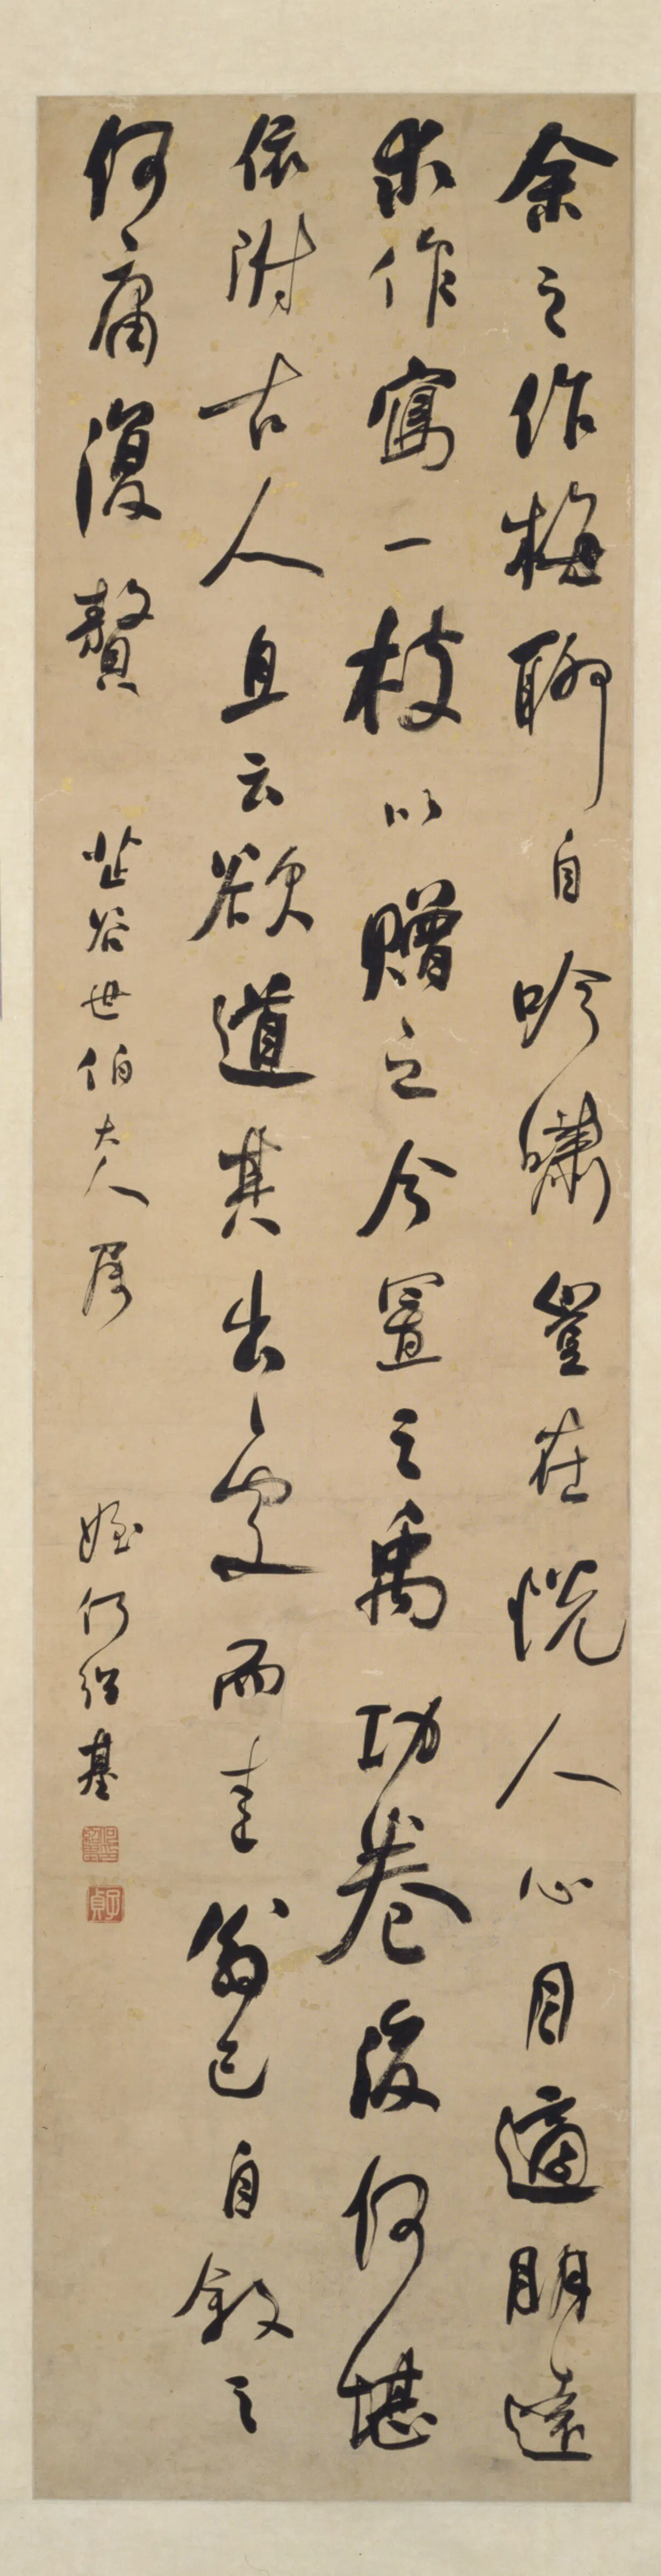 余之作梅聊自吟嘯豈在悅人心目適朋遠
求作寫一枝以贈之今置之禹功卷後何堪
依附古人且云欲道其出處而逃翁已自敘之
何庸復贅
芷谷世伯大人屬
姪何紹基